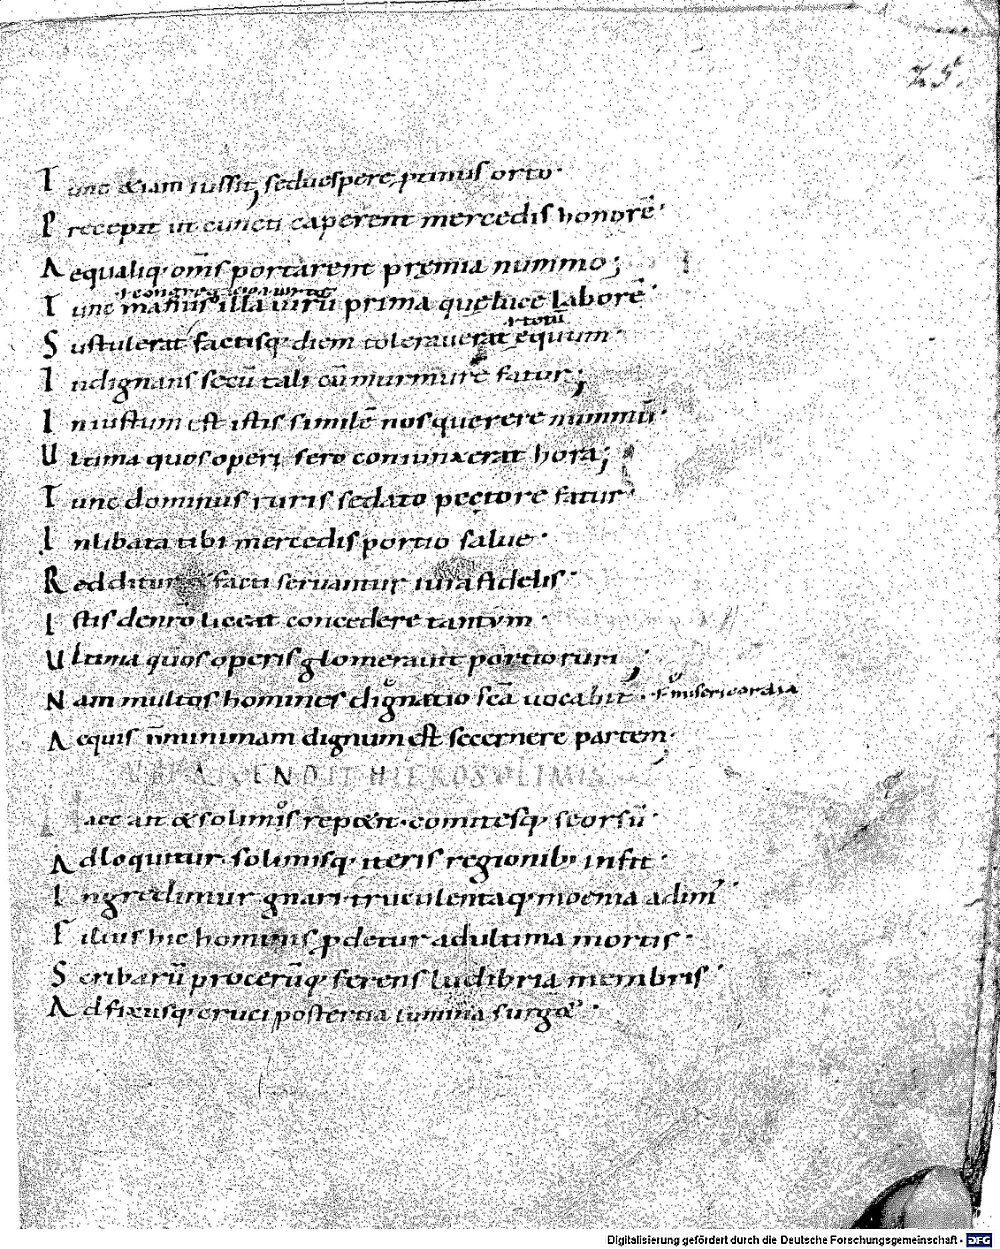 75.
Tunc &iam iussit, seduespere primus orto·
Precepit ut cuncti caperent mercedis honorē·
Aequaliq· om̄s portarent premia nummo;
ł congregatio
Tunc manus illa uirū prima que luce laborē·
ł totū
Sustulerat factisq· diem tolerauerat equum·
Indignans secū tali cū murmure fatur;
Iniustum est istis similē nos querere nummū·
Ultima quos operi sero coniunxerat hora;
Tunc dominus ruris sedato pectore fatur·
Inlibata tibi mercedis portio salue·
Redditur & facti seruantur iura fidelis·
Istis de nr̄o liceat concedere tantum·
Ultima quos operis glomerauit portio ruri;
Nam multos homines dignatio sc̄a uocabit· ł misericordia
Aequis n̄ minimam dignum est secernere partem·
UBI ASCENDIT HIEROSOLIMIS
Haec ait & solimis rep&ens comitesq· seorsū·
Adloquitur solimisq· iteris regionib; infit·
Ingredimur gnari truculentaq· moenia adim'·
Filius hic hominis p̱detur ad ultima mortis·
Scribarū procerūq· ferens ludibria membris·
Adfixusq· cruci post tertia lumina surg&·
Digitalisierung gefördert durch die Deutsche Forschungsgemeinschaft - DFG